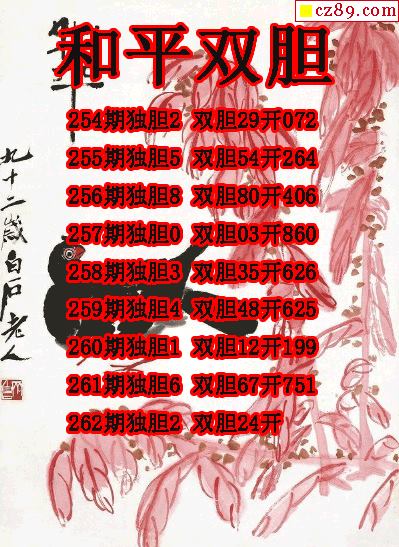 cz89.com
和平双胆
254期独胆2 双胆29开072
255期独胆5 双胆54开264
256期独胆8 双胆80开406
257期独胆0 双胆03开860
258期独胆3 双胆35开626
259期独胆4 双胆48开625
260期独胆1 双胆12开199
261期独胆6 双胆67开751
262期独胆2 双胆24开
九十二歲白石老人